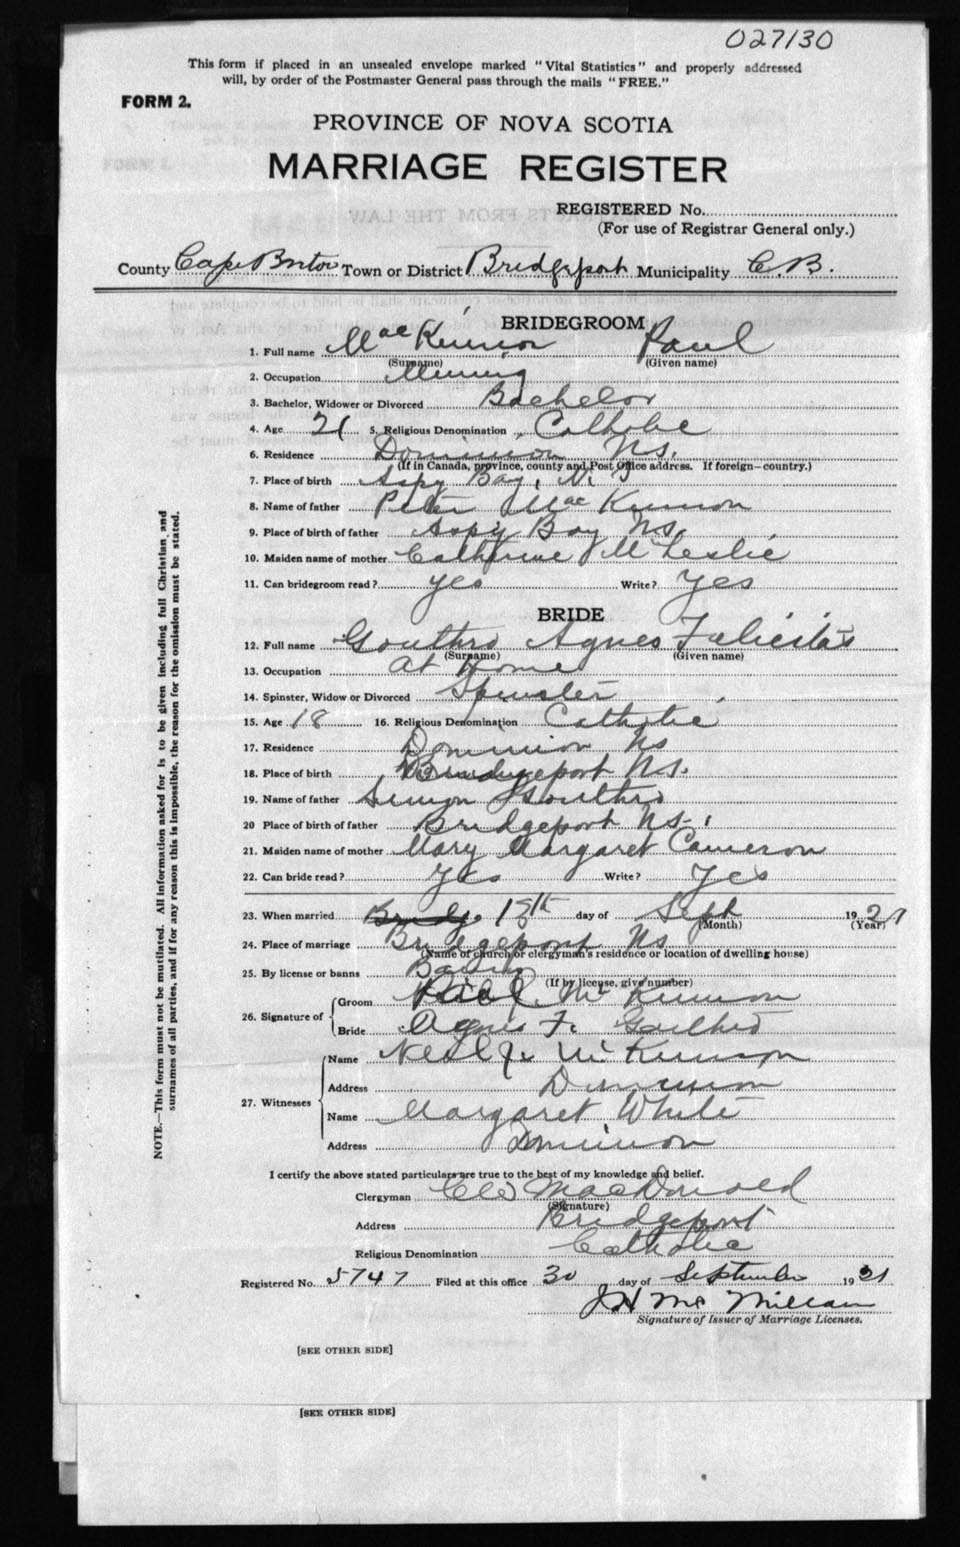 027130
This form if placed in an unsealed envelope marked "Vital Statistics" and properly addressed
will, by order of the Postmaster General pass through the mails "FREE."
FORM 2.
PROVINCE OF NOVA SCOTIA
MARRIAGE REGISTER
REGISTERED No.
(For use of Registrar General only.)
County Cape Breton Town or District Bridgeport Municipality C.B.
BRIDEGROOM
1. Full name MacKinnon Paul
(Surname) (Given name)
2. Occupation Mining
3. Bachelor, Widower or Divorced Bachelor
4. Age 21 5. Religious Denomination Catholic
6. Residence Dominion N.S.
(If in Canada, province, county and Post Office address. If foreign—country.)
7. Place of birth Aspy Bay, N.S
8. Name of father Peter MacKinnon
9. Place of birth of father Aspy Bay NS.
10. Maiden name of mother Catherine McLeslie
11. Can bridegroom read? yes Write? Yes
BRIDE
12. Full name Gouthro Agnes Falicitas
(Surname) (Given name)
13. Occupation at Home
14. Spinster, Widow or Divorced Spinster
15. Age 18 16. Religious Denomination Catholic
17. Residence Dominion Ns
18. Place of birth Bridgeport Ns.
19. Name of father Simon Gouthro
20 Place of birth of father Bridgeport Ns.
21. Maiden name of mother Mary Margaret Cameron
22. Can bride read? Yes Write? Yes
23. When married 15th day of Sept 1921
(Month) (Year)
24. Place of marriage Bridgeport Ns
(Name of church or clergyman's residence or location of dwelling house)
25. By license or banns Banns
(If by license, give number)
26. Signature of Groom Paul McKinnon
Bride Agnes F. Gouthro
27. Witnesses Name Neal J. McKinnon
Address Dominion
Name Margaret White
Address Dominion
I certify the above stated particulars are true to the best of my knowledge and belief.
Clergyman MacDonald
(Signature)
Address Bridgeport
Religious Denomination Catholic
Registered No. 5747 Filed at this office 30 day of September 1921
J H McMillan
Signature of Issuer of Marriage Licenses.
[SEE OTHER SIDE]
[SEE OTHER SIDE]
NOTE.—This form must not be mutilated. All information asked for is to be given including full Christian and
surnames of all parties, and if for any reason this is impossible, the reason for the omission must be stated.